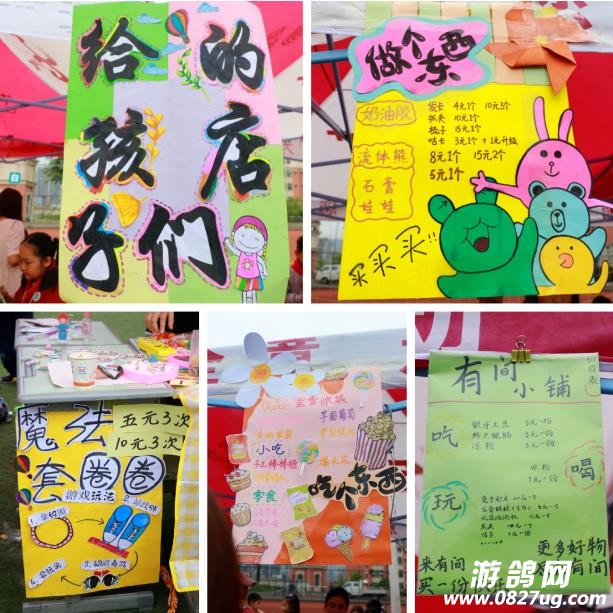 给孩子们的店
做个东西
奶油胶
发卡 4元1个 10元3个
抓夹 10元1个
梳子 15元1个
咕卡 3元1个 +1元升级
流体熊
8元1个 15元2个
石膏娃娃
5元1个
买买买!!
魔法套圈圈
五元3次
10元3次
游戏玩法
1.
2.
3.
4.
蜜雪冰城
芋圆葡萄
小吃
手工棒棒糖
爆米花
零食
吃个东西
有间小铺
价目表
吃
狼牙土豆 5元一份
凉粉 5元一份
喝
冰粉
7元一份
玩
来有间
买一份
更多好物
有间
游鸽网
www.0827ug.com